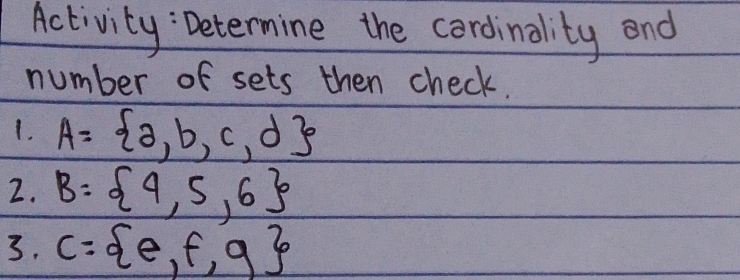 Activity: Determine the cardinality and
number of sets then check.
1. A= {a, b, c, d}
2. B= {4, 5, 6}
3. C= {e, f, g}